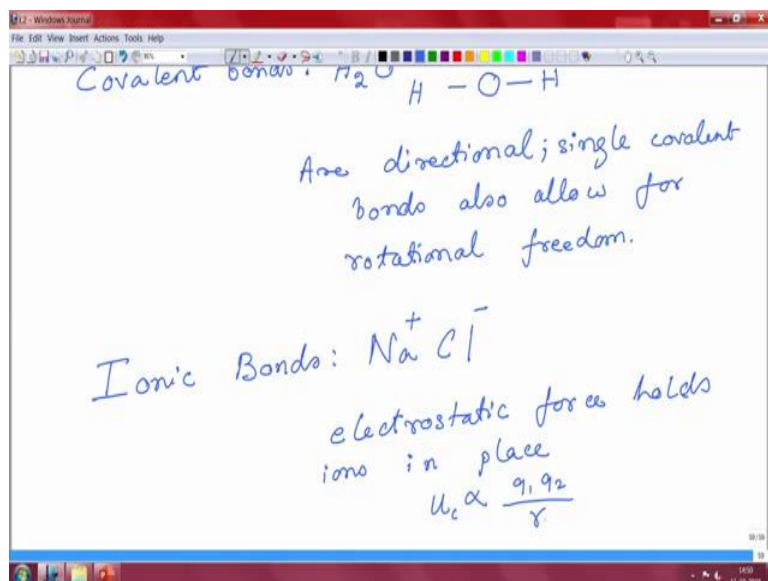 L2 - Windows Journal
File Edit View Insert Actions Tools Help
Covalent bonds: H2O H - O - H
Are directional; single covalent
bonds also allow for
rotational freedom.
Ionic Bonds: Na+ Cl-
electrostatic forces holds
ions in place
Uc ∝ q1 q2 / r
14:50